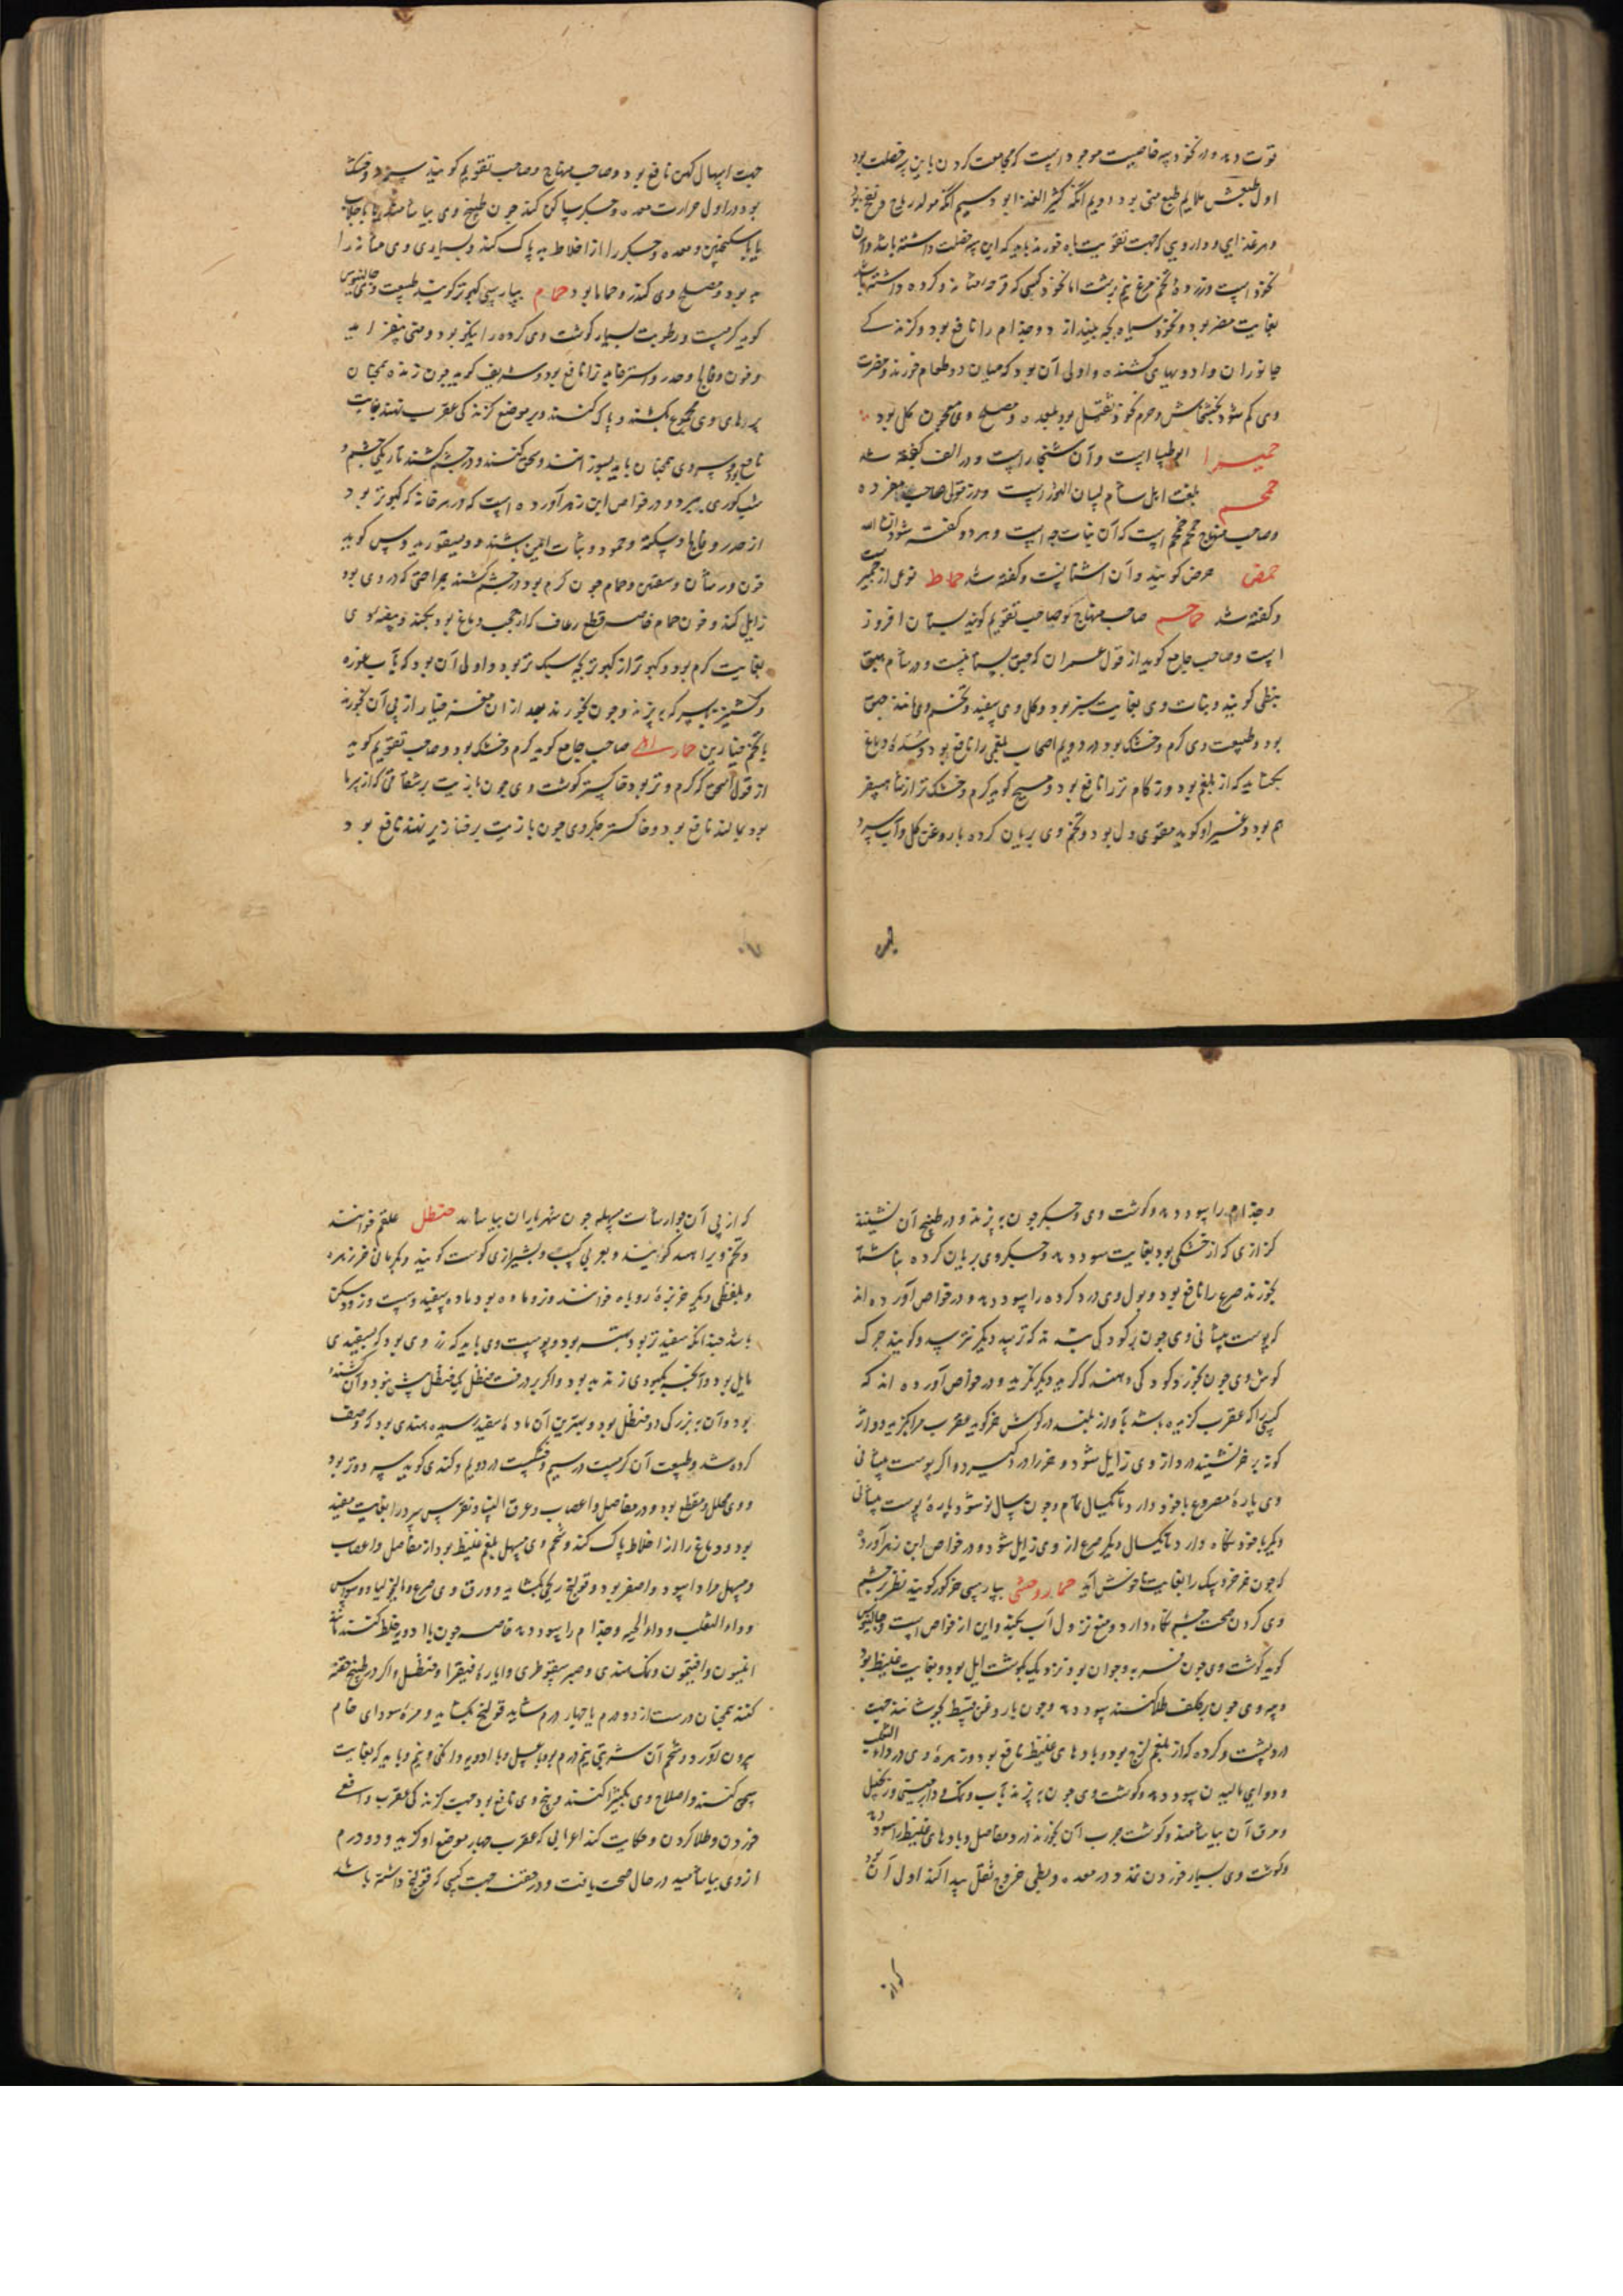 قوت دهد و در نخود سه خاصیت موجود است که مجامعت کردن باین سه خصلت بود
اول طبعش ملایم طبع منی بود دویم آنکه کثیر الغذا بود سیم آنکه مولد ریاح و نفخ بود
و هر غذایی و دارویی که جهت تقویت باه خورند باید که این سه خصلت داشته باشد و آن
نخود است وزرده تخم مرغ نیم برشت اما نخود کسی که قرحه مثانه و کرده داشته باشد
بغایت مضر بود و نخود سیاه بچه بیندازد و جذام را نافع بود و گزندگی
جانوران و ادویهای کشنده و اولی آن بود که میان دو طعام خورند و مضرت
وی کم شود بخشخاش و جرم نخود ثقیل بود بمعده و مصلح وی معجون گل بود
حمیرا ابوطیلسا است و آن شنجار است و در الف گفته شد
حمحم بلغت اهل شام لسان الثور است و در قول صاحب مفرده
و صاحب منهاج حمحم خمخم است که آن نبات خبه است و هر دو گفته شود ان شاء الله
حمض حرض گویند و آن اشنانست و گفته شد حماط نوعی از جمیز است
و گفته شد حماحم صاحب منهاج گوید صاحب تقویم گوید بستان افروز
است و صاحب جامع گوید از قول عمران که حبق بستانیست و در شام حبق
نبطی گویند و نبات وی بغایت سبز بود و گل وی سفید و تخم وی مانند حبق
بود و طبیعت وی گرم و خشک بود در دویم اصحاب بلغمی را نافع بود و سده دماغ
بگشاید که از بلغم بود و زکام تر را نافع بود و مسیح گوید گرم و خشک تر از شاهسفر
هم بود و غیر او گوید مقوی دل بود و تخم وی بریان کرده با روغن گل و آب سرد
جهت اسهال کهن نافع بود و صاحب منهاج و صاحب تقویم گویند سرد و خشک
بود در اول حرارت معده و جگر ساکن کند چون طبیخ وی بیاشامند یا با جلاب
یا با سکنجبین و معده و جگر را از اخلاط بد پاک کند و بسیاری وی مثانه را
بد بود و مصلح وی کندر و حماما بود حمام بپارسی کبوتر گویند طبیعت وی جالینوس
گوید گرمست و رطوبت بسیار گوشت وی کرده را نیکو بود و منی بیفزاید
و خون و فالج و خدر و استرخا را نافع بود و شریف گوید چون زنده همچنان
پرهای وی مجموع بکشند و پاک کنند و بر موضع گزندگی عقرب نهند بغایت
نافع بود و سر وی همچنان با پر بسوزانند و سحق کنند و در چشم کشند تاریکی چشم و
شب کوری ببرد و در خواص ابن زهر آورده است که در هر خانه که کبوتر بود
از خدر و فالج و سکته و جمود و سبات ایمن باشند و دیسقوریدوس گوید
خون ورشان و شفنین و حمام چون گرم بود در چشم کشند جراحتی که در وی بود
زایل کند و خون حمام خاصه قطع رعاف که از حجب دماغ بود بکند و بیضه وی
بغایت گرم بود و کبوتر از کبوتر بچه سبک تر بود و اولی آن بود که با آب غوره
و گشنیز یا سرکه بپزند و چون بخورند بعد از آن مغز خیار از پی آن بخورند
یا تخم خیارین حمار اهلی صاحب جامع گوید گرم و خشک بود و صاحب تقویم گوید
از قول اسحق که گرم و تر بود خاکستر گوشت وی چون با زیت بر شقاقی که از سرما
بود بمالند نافع بود و خاکستر جگر وی چون با زیت بر خنازیر نهند نافع بود
و جذام را سود دهد و گوشت وی و جگر چون بپزند و در طبیخ آن نشینند
کزازی که از خشکی بود بغایت سود دهد و جگر وی بریان کرده بناشتا
بخورند صرع را نافع بود و بول وی درد کرده را سود دهد و در خواص آورده اند
که پوست پیشانی وی چون بر کودکی بندند که ترسد دیگر نترسد و گویند چرک
گوش وی چون بخورد کودکی دهند که گرید دیگر نگرید و در خواص آورده اند که
کسی را که عقرب گزیده باشد بآواز بلند در گوش خر گوید عقرب مرا گزید و واژ
گونه بر خر نشیند درد از وی زایل شود و خر را درد گیرد و اگر پوست پیشانی
وی پاره مصروع با خود دارد تا یکسال تمام و چون سال نو شود پاره پوست پیشانی
دیگر با خود نگاه دارد تا یکسال دیگر صرع از وی زایل شود و در خواص ابن زهر آورده
که چون خر خرد سگ را بغایت ناخوش آید حمار وحشی بپارسی خر گور گویند نظر در چشم
وی کردن صحت چشم نگاه دارد و منع نزول آب بکند و این از خواص است و جالینوس
گوید گوشت وی چون فربه و جوان بود نزدیک بگوشت ایل بود و بغایت غلیظ بود
و پیه وی چون بر کلف طلا کنند سود دهد و چون با روغن قسط بجوشانند جهت
درد پشت و کرده که از بلغم لزج بود و بادهای غلیظ نافع بود و زهره وی در داء الثعلب
و دوایی مالیدن سود دهد و گوشت وی چون بپزند بآب و نمک و دارچینی و زنجبیل
و مرق آن بیاشامند و گوشت چرب آن بخورند درد مفاصل و بادهای غلیظ را سود دهد
و گوشت وی بسیار خوردن تمدد در معده و بطی خروج ثقل پیدا کند اولی آن بود
که از پی آن جوارشات مسهله چون شهریاران بیاشامند حنظل علقم خوانند
و تخم ویرا هبید گویند و بعربی کبست و بشیرازی کوست گویند و بکرمانی خرزهره
و بلفظی دیگر خربزه روباه خوانند و نر و ماده بود ماده سفید و سست و زود شکن
باشد چندانکه سفیدتر بود بهتر بود و پوست وی باید که زردی بود که بسفیدی
مایل بود و آنچه بکبودی زند بد بود و اگر بر درخت حنظل یک حنظل بیش نبود آن کشنده
بود و آن به بزرگی دو حنظل بود و بهترین آن ماده سفید رسیده هندی بود که وصف
کرده شد و طبیعت آن گرمست در سیم و خشکست در دویم و کندی گوید سرد و تر بود
و وی محلل و مقطع بود و در مفاصل و اعصاب و عرق النسا و نقرس سرد را بغایت مفید
بود و دماغ را از اخلاط پاک کند و شحم وی مسهل بلغم غلیظ بود از مفاصل و اعصاب
و مسهل مرار اسود و اصفر بود و قولنج ریحی بگشاید و ورق وی صرع و مالیخولیا و وسواس
و داء الثعلب و داء الحیه و جذام را سود دهد خاصه چون با ادویه خلط کنند مانند
انیسون و افتیمون و نمک هندی و صبر سقوطری و ایاره فیقرا و حنظل و اگر در طبیخ حقنه
کنند همچنان درست از دو درم یا چهار درم شاید قولنج بگشاید و مره سودای خام
بیرون آورد و شحم آن شربتی نیم درم بود با عسل و با ادویه دانگی و نیم و باید که بغایت
سحق کنند و اصلاح وی بکتیرا کنند و بیخ وی نافع بود جهت گزندگی عقرب و افعی
خوردن و طلا کردن و حکایت کند اعرابی که عقرب چهار موضع او گزید و دو درم
از وی بیاشامید در حال صحت یافت و در حقنه جهت کسی که قولنج داشته باشد